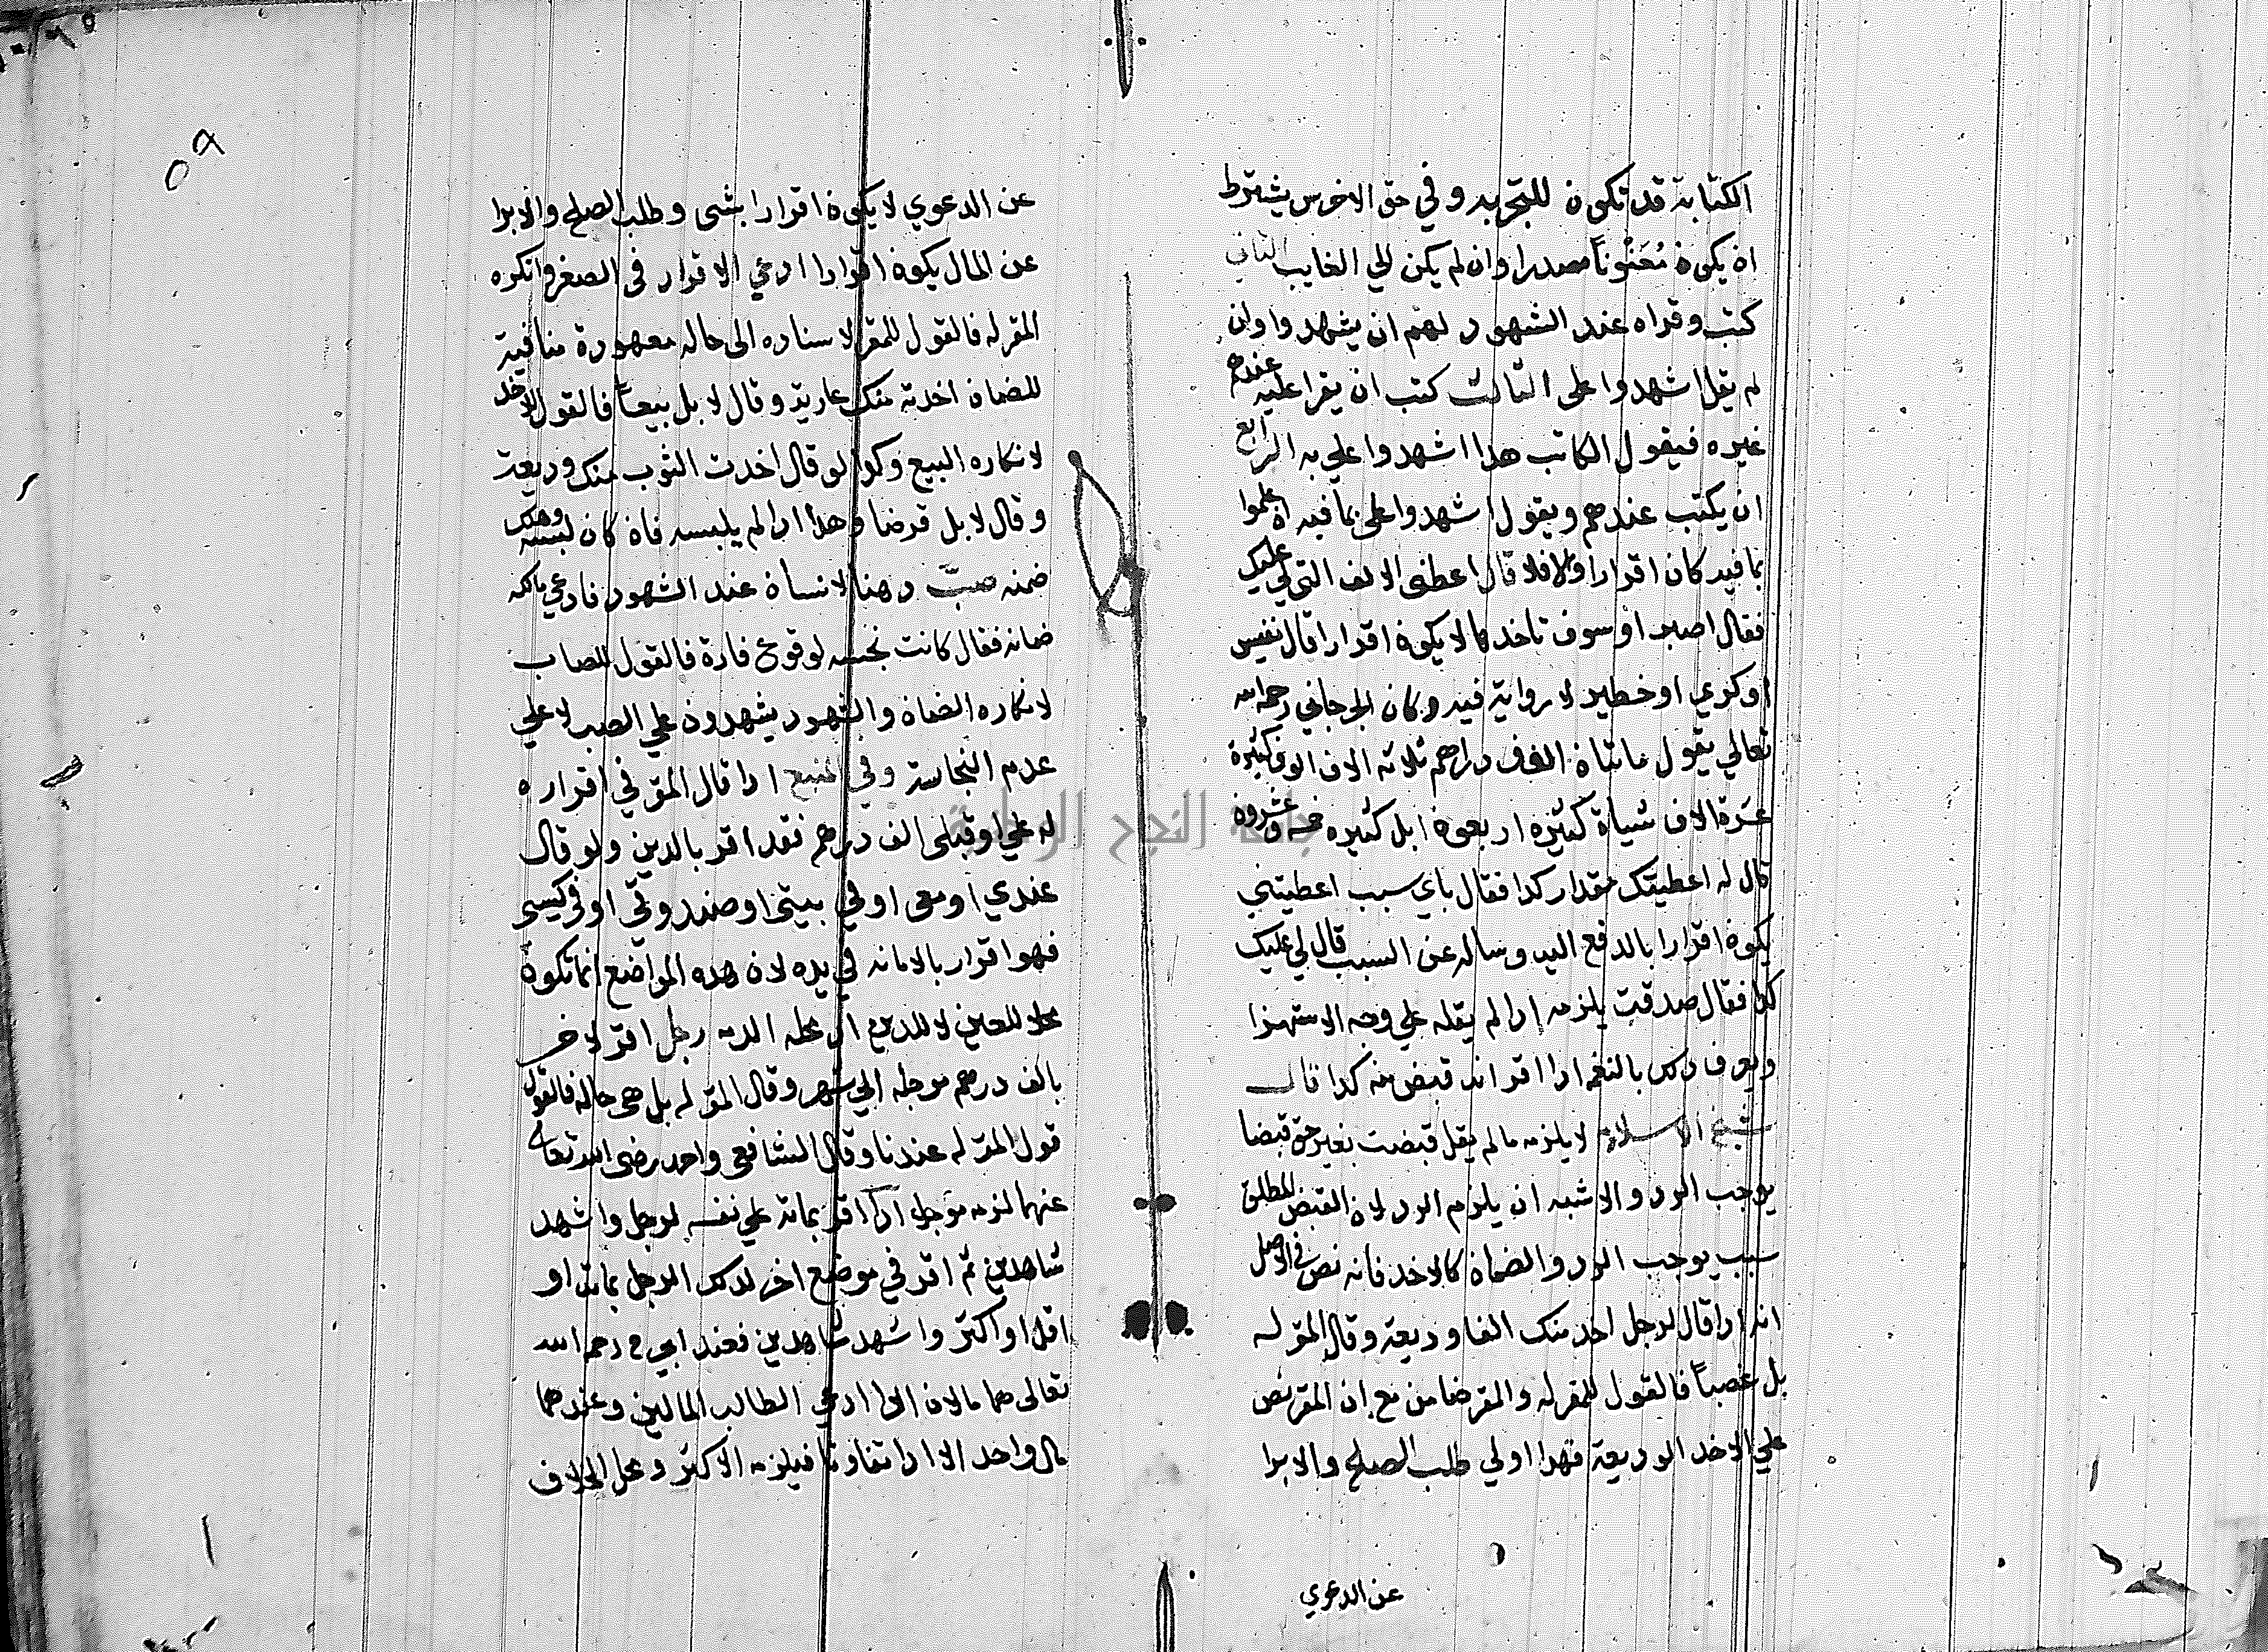 الكتابة قد تكون للتجربه وفي حق الاخرس يشترط
ان يكون مُعَنْوناً مصدرا وان لم يكن الي الغايب الثاني
كتب وقراه عند الشهود لهم ان يشهدوا وان
لم يقل اشهدوا على الثالث كتب ان يقرا عليه عندهم
غيره فيقول الكاتب هذا اشهدوا علي به الرابع
ان يكتب عندهم ويقول اشهدوا على بما فيه ان علموا
بما فيه كان اقرارا والا فلا قال اعطنى الالف التي لي عليك
فقال اصبر او سوف تاخدها لا يكون اقرارا قال نفيس
او كريم او خطير لا رواية فيه وكان الجرجاني رحمه الله
تعالي يقول مائتان الوف دراهم ثلاثه الاف الوف كثيرة
عشرة الاف شياة كثيره اربعون ابل كثيره خمسه وعشرون
قال له اعطيتك مقدار كدا فقال باي سبب اعطيتني
يكون اقرارا بالدفع اليه وساله عن السبب قال لي عليك
كدا فقال صدقت يلزمه إدا لم يقله علي وجه الاستهزا
ويعرف دلك بالنغم ادا اقر انه قبض منه كدا قال
شيخ الاسلام لا يلزمه ما لم يقل قبضت بغير حق قبضا
يوجب الرد والاشبه ان يلزم الرد لان القبض المطلق
سبب يوجب الرد والضمان كالاخد فانه نص في الاصل
انه ادا قال لرجل اخد منك الفا وديعة وقال المقر له
بل غصباً فالقول للمقر له والمقر ضامن مع ان المقر نص
علي الاخد الوديعة فهدا اولي طلب الصلح والابرا
عن الدعوي
٥٨
عن الدعوي لا يكون اقرارا بشى وطلب الصلح والابرا
عن المال يكون اقرارا ادعي الاقرار فى الصغر وانكره
المقر له فالقول للمقر لاسناده الى حاله معهودة منافية
للضمان اخدته منك عارية وقال لا بل بيعاً فالقول للاخد
لانكاره البيع وكدا لو قال اخدت الثوب منك وديعة
وقال لا بل قرضا وهدا ادا لم يلبسه فان كان لبسه وهلك
ضمنه صبّ دهنا لانسان عند الشهود فادعي مالكه
ضمانه فقال كانت نجسه لوقوع فارة فالقول للصاب
لانكاره الضمان والشهود يشهدون علي الصب لا علي
عدم النجاسة وفي المنبع ادا قال المقر في اقراره
له علي او قبلى الف درهم فقد اقر بالدين ولو قال
عندي او معى او في بيتى او صندوقى او فى كيسى
فهو اقرار بالامانه في يده لان هده المواضع انما تكون
محلا للعين لا للدين اد محله الدمه رجل اقر لاخر
بالف درهم موجله الي شهر وقال المقر له بل هى حاله فالقول
قول المقر له عندنا وقال الشافعى واحمد رضى الله تعالى
عنهما لزمه موجلا ادا اقر بماية علي نفسه لرجل واشهد
شاهدين ثم اقر في موضع اخر لدلك الرجل بماية او
اقل او اكثر واشهد شاهدين فعند ابي ح رحمه الله
تعالى هما مالان ادا ادعي الطالب المالين وعندهما
مال واحد الا ادا تفاوتا فيلزمه الاكثر ومحل الخلاف